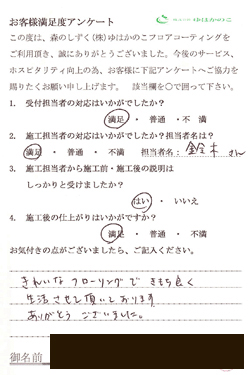 お客様満足度アンケート
この度は、森のしずく(株)ゆはかのこフロアコーティングを
ご利用頂き、誠にありがとうございました。今後のサービス、
ホスピタリティ向上の為、お客様に下記アンケートへご協力を
賜りたくお願い申し上げます。 該当欄を〇で囲って下さい。
1. 受付担当者の対応はいかがでしたか?
満足 ・ 普通 ・不 満
2. 施工担当者の対応はいかがでしたか?担当者名は?
満足 ・ 普通 ・ 不満 担当者名: 鈴木 さん
3. 施工担当者から施工前・施工後の説明は
しっかりと受けましたか?
はい ・ いいえ
4. 施工後の仕上がりはいかがですか?
満足 ・ 普通 ・ 不満
お気付きの点がございましたら、ご記入ください。
きれいなフローリングで きもち良く
生活させて頂いております
ありがとうございました。
御名前